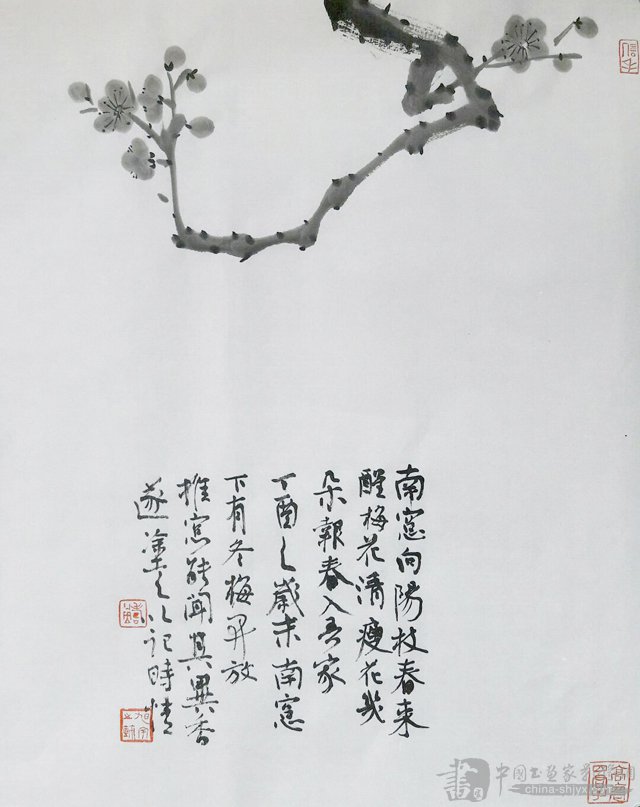 南窓向陽枝春来
醒梅花清瘦花幾
朵報春入吾家
丁酉之歲末南窓
下有冬梅開放
推窓能聞其異香
遂塗之以記時情
中国书画家
china-shjyx.com